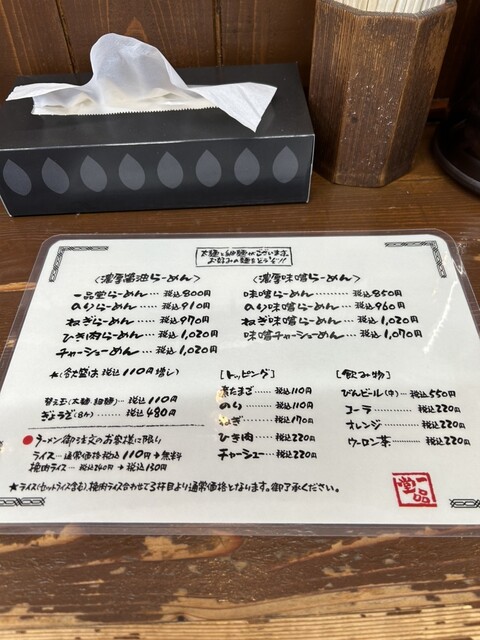 太麺と細麺がございます。
お好みの麺をどうぞ!!
〈濃厚醤油らーめん〉
一品堂らーめん…… 税込800円
のりらーめん…… 税込910円
ねぎらーめん…… 税込970円
ひき肉らーめん…… 税込1,020円
チャーシューめん…… 税込1,020円
税込110円増し)
〈濃厚味噌らーめん〉
味噌らーめん…… 税込850円
のり味噌らーめん…… 税込960円
ねぎ味噌らーめん…… 税込1,020円
味噌チャーシューめん…… 税込1,070円
替え玉(太麺・細麺)… 税込110円
ぎょうざ(8ヶ)…… 税込480円
●ラーメン御注文のお客様に限り
ライス… 通常価格税込110円→無料
挽肉ライス… 税込240円→税込130円
[トッピング]
煮たまご…… 税込110円
のり…… 税込110円
ねぎ…… 税込170円
ひき肉…… 税込220円
チャーシュー… 税込220円
[飲み物]
びんビール(中)… 税込550円
コーラ…… 税込220円
オレンジ…… 税込220円
ウーロン茶…… 税込220円
★ライス(セットライス含む)、挽肉ライス合わせて3杯目より通常価格となります。御了承ください。
一品堂